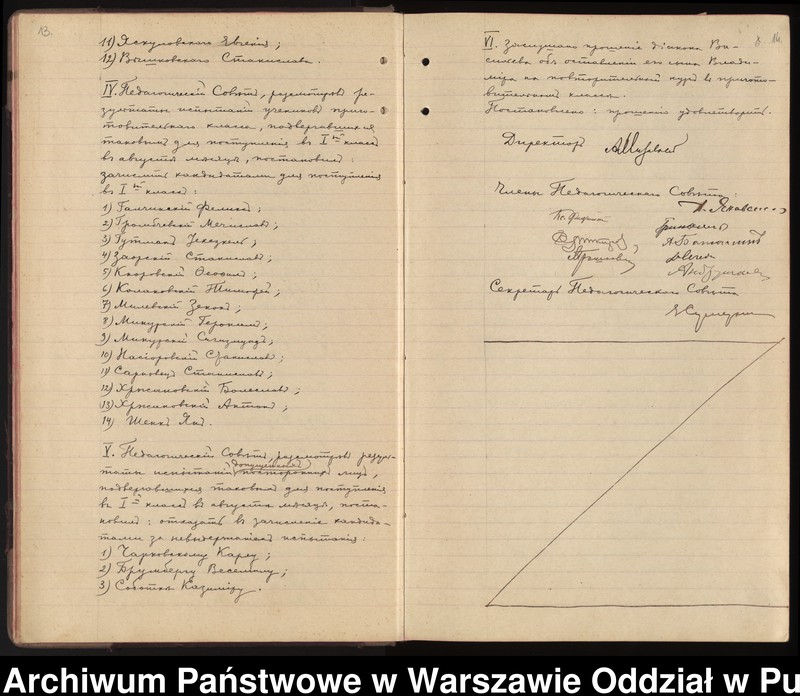 13.
11) Яскуловскаго Евгенія;
12) Вышковскаго Станислава.
IV. Педагогическій Совѣтъ, разсмотрѣвъ ре-
зультаты испытаній учениковъ приго-
товительнаго класса, подвергавшихся
таковымъ для поступленія въ I классъ
въ августѣ мѣсяцѣ, постановилъ:
зачислить кандидатами для поступленія
въ I классъ:
1) Галчинскій Феликсъ;
2) Громбчевскій Мечиславъ;
3) Гутманъ
4) Заорскій Станиславъ;
5)
6) Колаковскій Тимофей;
7) Милевскій Зенонъ;
8) Микурскій Геронимъ;
9) Микурскій Сигизмундъ;
10) Насіоровскій Станиславъ;
11) Станиславъ;
12) Хржановскій Болеславъ;
13) Хржановскій Антонъ;
14) Шенкъ Янъ.
V. Педагогическій Совѣтъ, разсмотрѣвъ резуль-
таты испытаній допущенныхъ постороннихъ лицъ,
подвергавшихся таковымъ для поступленія
въ I классъ въ августѣ мѣсяцѣ, поста-
новилъ: отказать въ зачисленіи кандида-
тами за невыдержаніемъ испытанія:
1) Чарковскому Карлу;
2) Брумбергу
3) Казиміру.
14.
VI. Заслушано прошеніе діакона Ва-
сильева объ оставленіи его сына Влади-
міра на повторительный курсъ въ пригото-
вительномъ классѣ.
Постановлено: прошеніе удовлетворить.
Директоръ
Члены Педагогическаго Совѣта:
Секретарь Педагогическаго Совѣта
Archiwum Państwowe w Warszawie Oddział w Pu